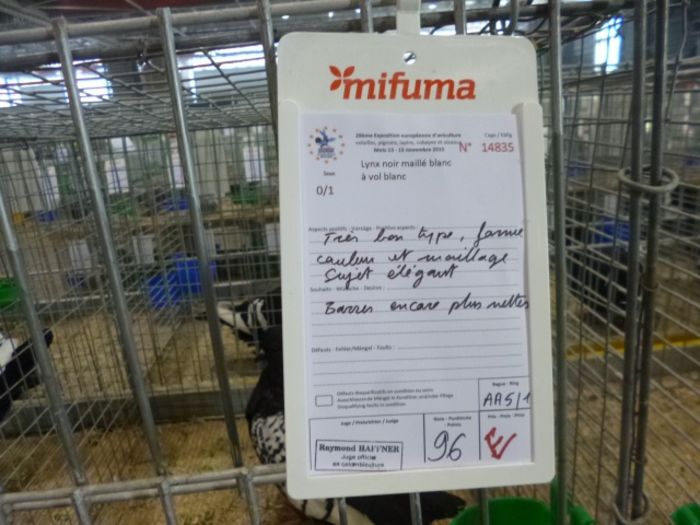 mifuma
28ème Exposition européenne d'aviculture
volailles, pigeons, lapins, cobayes et oiseaux
Metz 13 - 15 novembre 2015
Cage / Käfig
N° 14835
Lynx noir maillé blanc
à vol blanc
Sexe
0/1
Aspects positifs - Vorzüge - Positive aspects :
Très bon type, forme
couleur et maillage
Sujet élégant
Souhaits - Wünsche - Desires :
Barres encore plus nettes
Défauts - Fehler/Mängel - Faults :
Défauts disqualificatifs en condition ou soins
Ausschliessende Mängel in Kondition und/oder Pflege
Disqualifying faults in condition
Bague - Ring
AA5/1
Juge / Preisrichter / Judge
Note - Punktzahl
Points
Prix - Preis - Price
Raymond HAFFNER
Juge officiel
en colombiculture
96
E